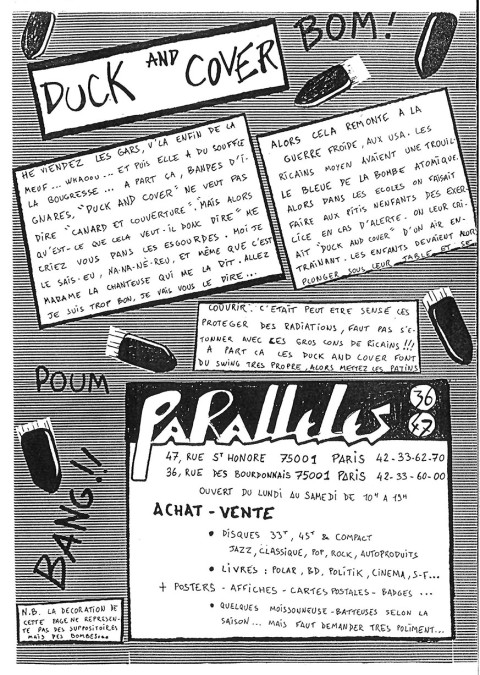 DUCK AND COVER
BOM!
HE VIENDEZ LES GARS, V'LA ENFIN DE LA
MEUF ... WHAOOU ... ET PUIS ELLE A DU SOUFFLE
LA BOUGRESSE ... A PART ÇA, BANDES D'I-
GNARES, "DUCK AND COVER" NE VEUT PAS
DIRE "CANARD ET COUVERTURE". MAIS ALORS
QU'EST-CE QUE CELA VEUT-IL DONC DIRE" ME
CRIEZ VOUS DANS LES ESGOURDES. MOI JE
LE SAIS-EU, NA-NA-NÈ-REU, ET MÊME QUE C'EST
MADAME LA CHANTEUSE QUI ME LA DIT. ALLEZ
JE SUIS TROP BON, JE VAIS VOUS LE DIRE ...
ALORS CELA REMONTE A LA
GUERRE FROIDE, AUX USA. LES
RICAINS MOYEN AVAIENT UNE TROUIL-
LE BLEUE DE LA BOMBE ATOMIQUE.
ALORS DANS LES ECOLES ON FAISAIT
FAIRE AUX PITIS NENFANTS DES EXER-
CICE EN CAS D'ALERTE. ON LEUR CRI-
AIT "DUCK AND COVER" D'UN AIR EN-
TRAINANT. LES ENFANTS DEVAIENT ALORS
PLONGER SOUS LEUR TABLE ET SE
COUVRIR. C'ETAIT PEUT ETRE SENSÉ LES
PROTEGER DES RADIATIONS, FAUT PAS S'E-
TONNER AVEC LES GROS CONS DE RICAINS!!!
A PART ÇA LES DUCK AND COVER FONT
DU SWING TRES PROPRE, ALORS METTEZ LES PATINS
POUM
BANG!!
PARALLELES
36
47
47, RUE ST HONORE 75001 PARIS 42-33-62-70
36, RUE DES BOURDONNAIS 75001 PARIS 42-33-60-00
OUVERT DU LUNDI AU SAMEDI DE 10H A 19H
ACHAT - VENTE
• DISQUES 33T, 45T & COMPACT
JAZZ, CLASSIQUE, POP, ROCK, AUTOPRODUITS
• LIVRES : POLAR, BD, POLITIK, CINÉMA, S-F...
+ POSTERS - AFFICHES - CARTES POSTALES - BADGES ...
• QUELQUES MOISSONNEUSE-BATTEUSES SELON LA
SAISON ... MAIS FAUT DEMANDER TRES POLIMENT...
N.B. LA DECORATION DE
CETTE PAGE NE REPRESEN-
TE PAS DES SUPPOSITOIRES
MAIS DES BOMBES...